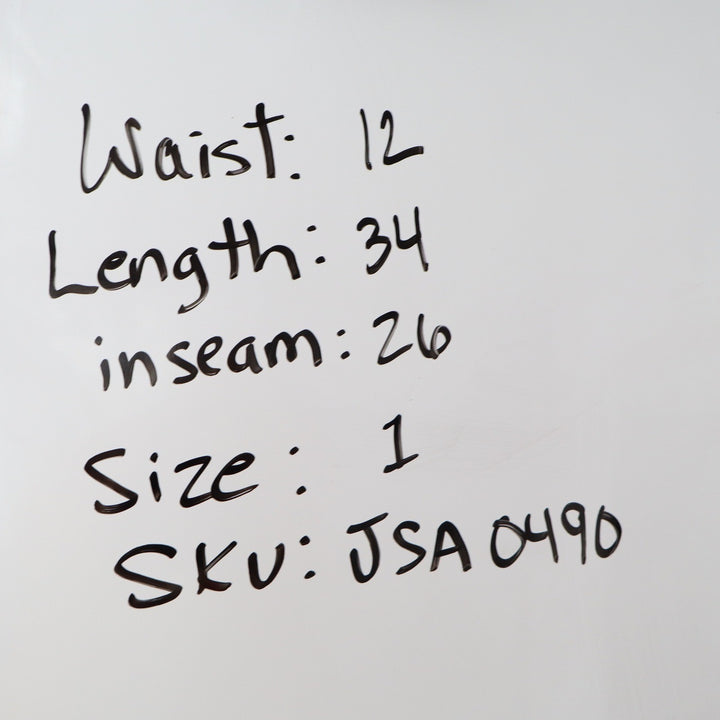 Waist: 12
Length: 34
inseam: 26
Size: 1
SKU: JSA 0490